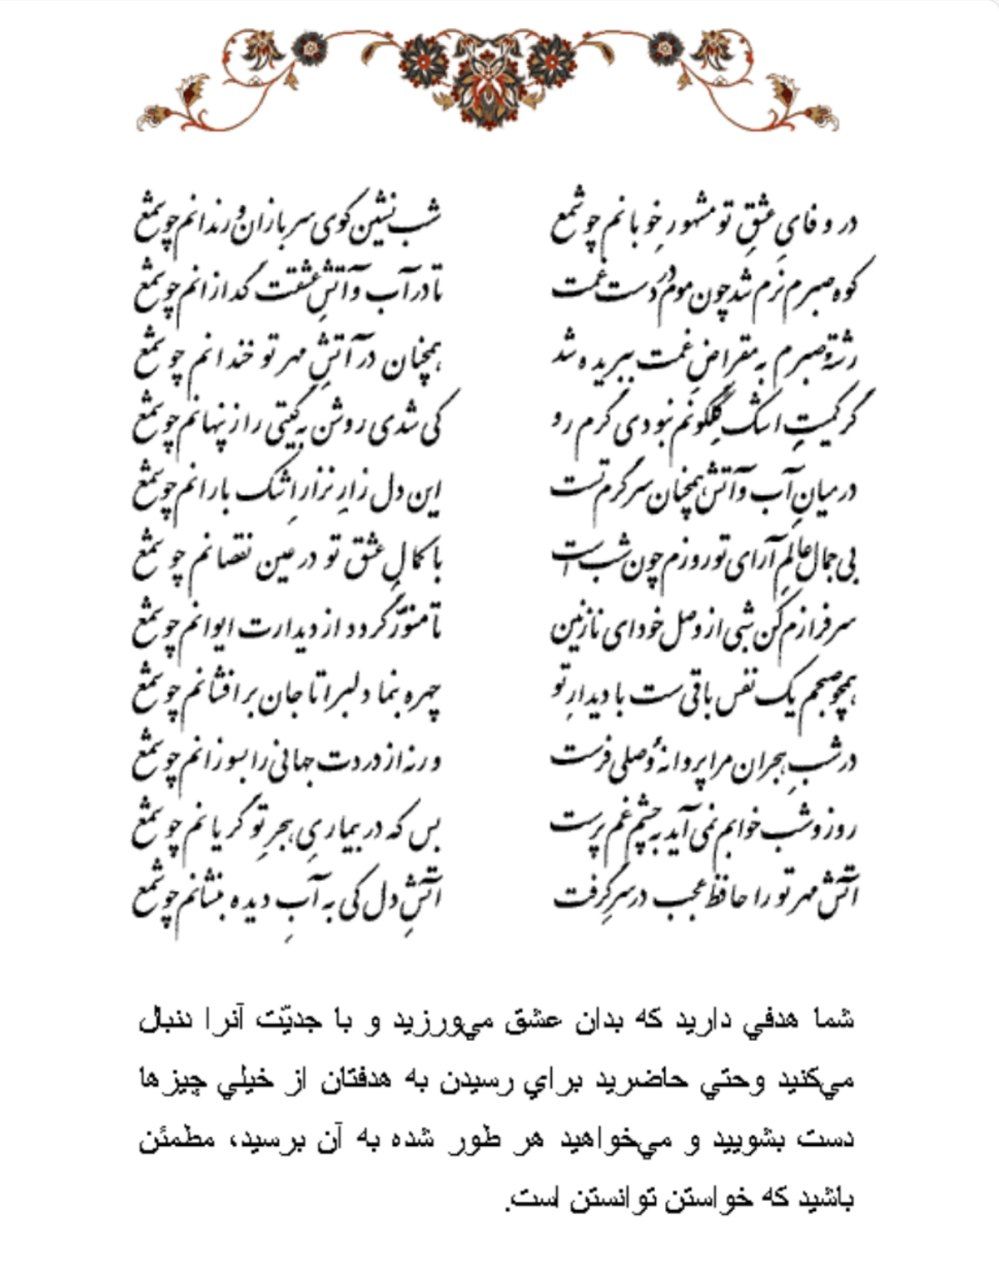 در وفایِ عشقِ تو مشهورِ خوبانم چو شمع
شب نشین کوی سربازان و رندانم چو شمع
کوه صبرم نرم شد چون موم در دست غمت
تا در آب و آتشِ عشقت گدازانم چو شمع
رشتهٔ صبرم به مقراضِ غمت ببریده شد
همچنان در آتشِ مهر تو خندانم چو شمع
گر کمیتِ اشک گلگونم نبودی گرم رو
کی شدی روشن به گیتی راز پنهانم چو شمع
در میانِ آب و آتش همچنان سرگرم تست
این دل زارِ نزارِ اشک بارانم چو شمع
بی جمال عالم آرای تو روزم چون شب است
با کمالِ عشق تو در عین نقصانم چو شمع
سرفرازم کن شبی از وصل خود ای نازنین
تا منوّر گردد از دیدارت ایوانم چو شمع
همچو صبحم یک نفس باقی ست با دیدارِ تو
چهره بنما دلبرا تا جان برافشانم چو شمع
در شبِ هجران مرا پروانهٔ وصلی فرست
ورنه از دردت جهانی را بسوزانم چو شمع
روز و شب خوابم نمی آید به چشم غم پرست
بس که در بیماریِ هجرِ تو گریانم چو شمع
آتش مهر تو را حافظ عجب در سر گرفت
آتشِ دل کی به آبِ دیده بنشانم چو شمع
شما هدفي داريد که بدان عشق مي‌ورزيد و با جديّت آنرا دنبال
مي‌کنيد وحتي حاضريد براي رسيدن به هدفتان از خيلي چيزها
دست بشوييد و مي‌خواهيد هر طور شده به آن برسيد، مطمئن
باشيد که خواستن توانستن است.